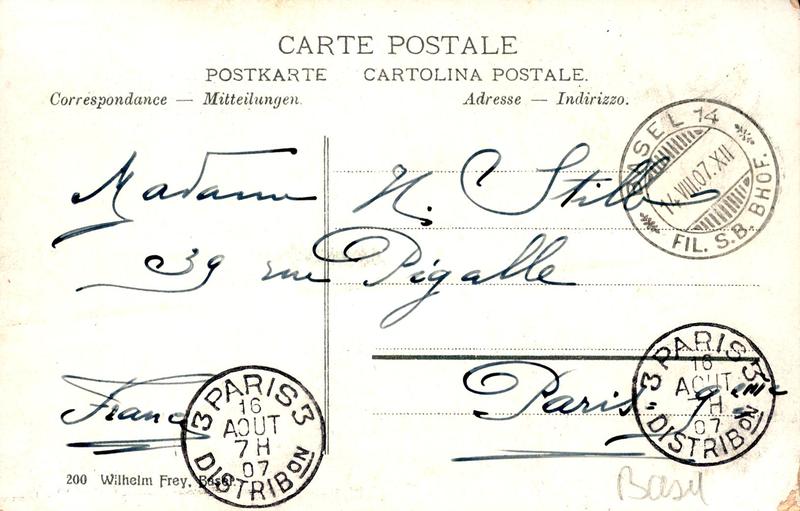 CARTE POSTALE
POSTKARTE CARTOLINA POSTALE.
Correspondance — Mitteilungen.
Adresse — Indirizzo.
BASEL 14
14.VIII.07.XII
FIL. S.B. BHOF.
Madame H. C. Still
39 rue Pigalle
France
Paris 9eme
3 PARIS 3
16
AOUT
7 H
07
DISTRIBON
3 PARIS 3
16
AOUT
7 H
07
DISTRIBON
200 Wilhelm Frey, Basel.
Basel